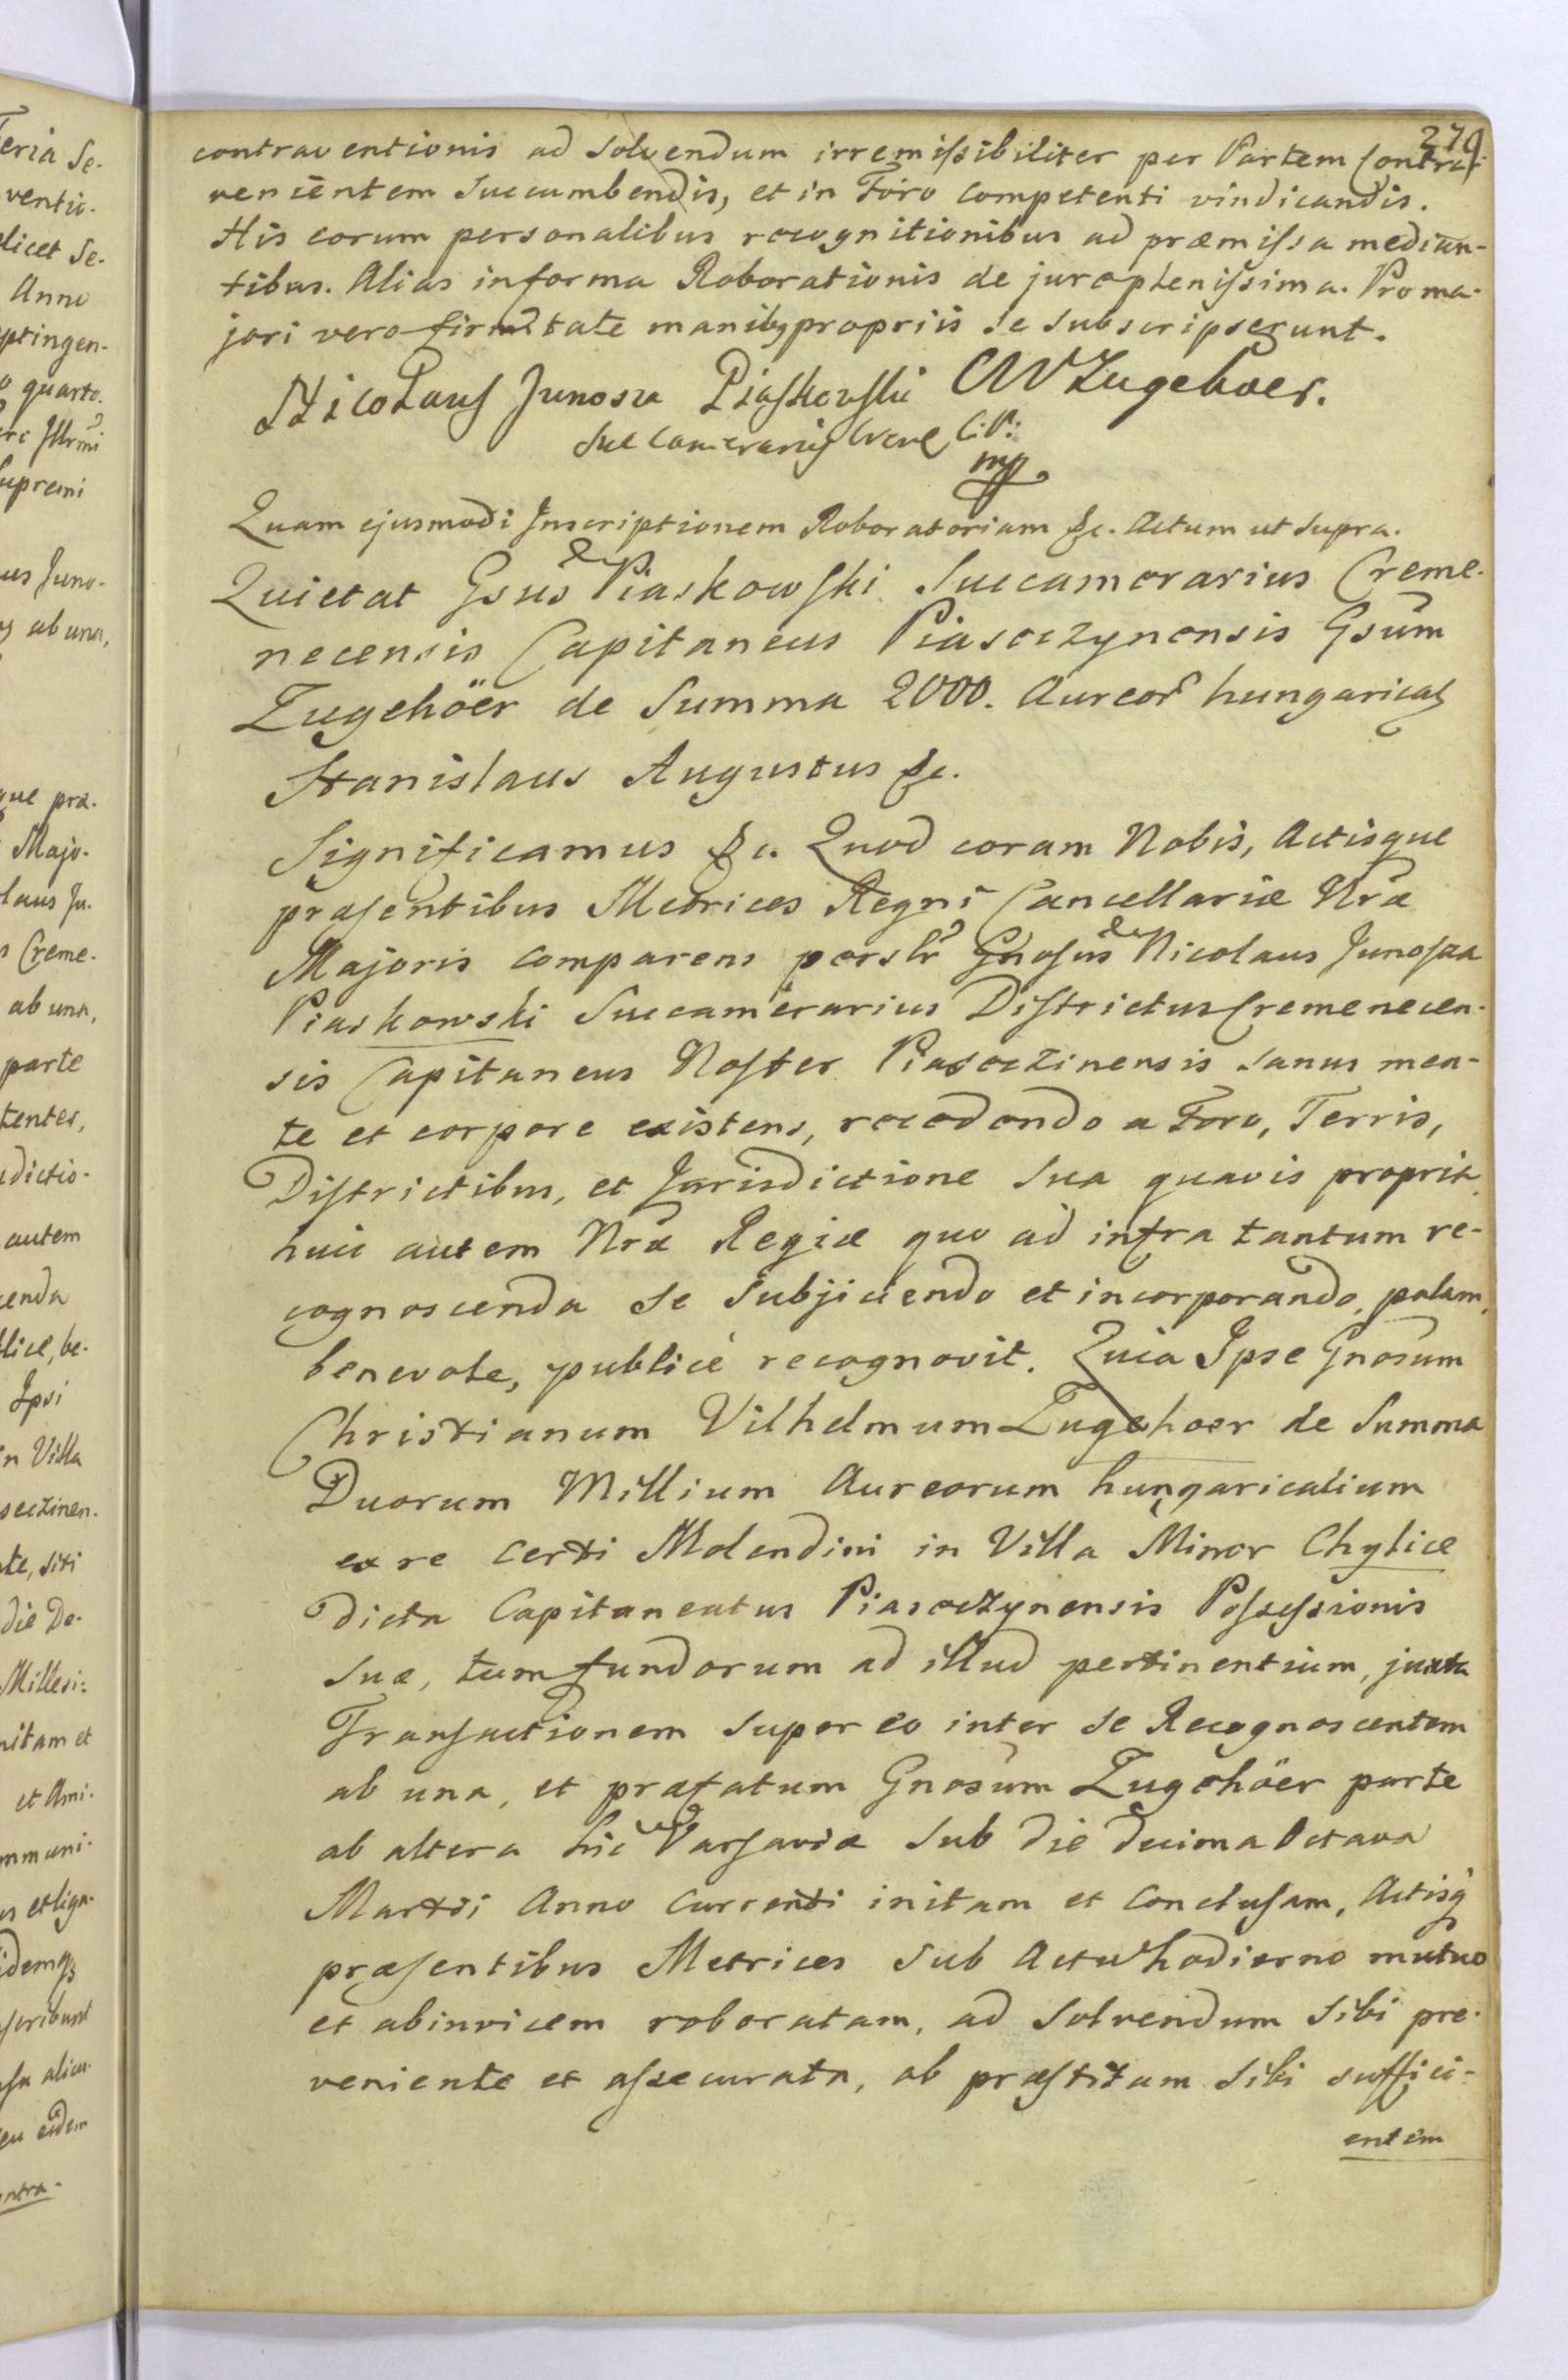 270
contraventionis ad solvendum irremissibiliter per Partem Contra-
venientem succumbendis, et in Foro competenti vindicandis.
His eorum personalibus recognitionibus ad præmissa median-
tibus. Alias informa Roborationis de jure plenissima. Pro ma-
jori vero firmitate manibq propriis se subscripserunt.
Nicolaus Junosza Piaskowski CW Zugehoer.
Succamerariq Creme C:P:
mp
Quam ejusmodi Inscriptionem Roboratoriam &c. Actum ut supra.
Quietat Gsus de Piaskowski Succamerarius Creme-
necensis Capitaneus Piaseczynensis Gsum
Zugehöer de Summa 2000. Aureor hungarical
Stanislaus Augustus &c.
Significamus &c. Quod coram Nobis, Actisque
præsentibus Metrices Regni Cancellariæ Nræ
Majoris comparens perslr Gnosus de Nicolaus Junosza
Piaskowski Succamerarius Districtus Cremenecen-
sis Capitaneus Noster Piaseczinensis sanus men-
te et corpore existens, recedendo a Foro, Terris,
Districtibus, et Jurisdictione sua quavis propria
huic autem Nræ Regiæ quo ad infra tantum re-
cognoscenda se subjiciendo et incorporando, palam,
benevole, publicè recognovit. Quia Ipse Gnosum
Christianum Vilhelmum Zugehoer de Summa
Duorum Millium Aureorum hungaricalium
ex re certi Molendini in Villa Minor Chylice
dicta Capitaneatus Piaseczynensis Possessionis
suæ, tum fundorum ad illud pertinentium, juxta
Transactionem super eo inter se Recognoscentem
ab una, et præfatum Gnosum Zugehöer parte
ab altera hic Varsaviæ sub die decima Octava
Martii Anno Currenti initam et conclusam, Actisq
præsentibus Metrices sub Actu hodierno mutuo
et abinvicem roboratam, ad solvendum sibi pre-
veniente et assecurata, ob præstitam sibi suffici-
entem